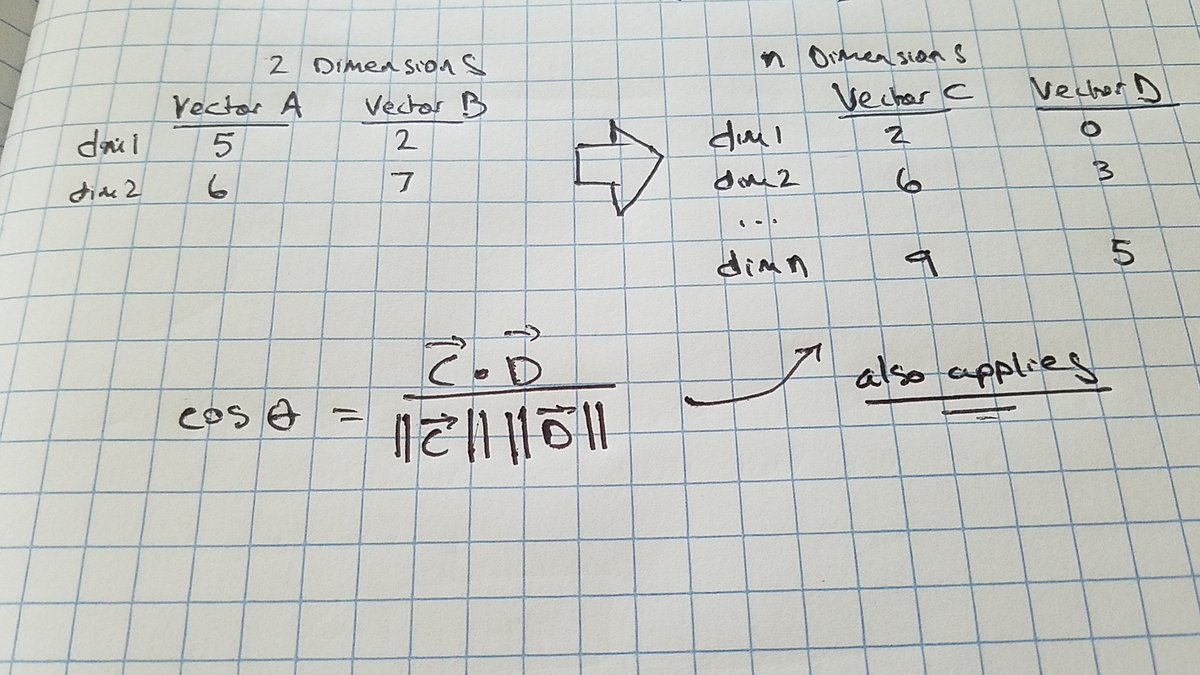 2 Dimensions
Vector A Vector B
dim 1 5 2
dim 2 6 7
n Dimensions
Vector C Vector D
dim 1 2 0
dim 2 6 3
...
dim n 9 5
cos θ = C⃗ • D⃗ / ||C⃗|| ||D⃗||
also applies